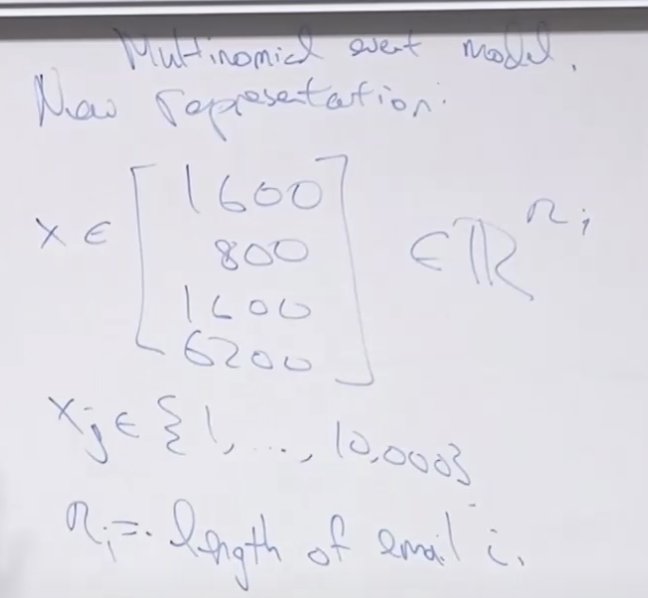 Multinomial event model.
New representation:
x ∈ [ 1600
800
1600
6200 ] ∈ ℝ^{n_i}
x_j ∈ {1, ..., 10,000}
n_i = length of email i.